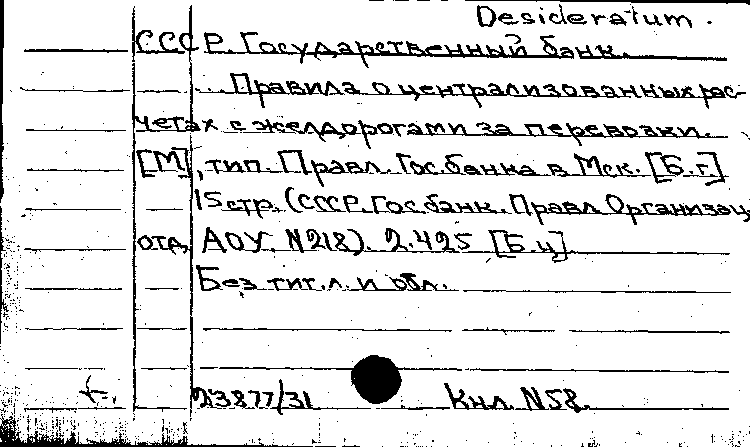 Desideratum.
СССР. Государственный банк.
Правила о централизованных рас-
четах с желдорогами за перевозки.
[М], тип. Правл. Гос.банка в Мск. [Б.г]
15 стр. (СССР. Гос.банк. Правл. Организац
отд. АОУ. N218). 2.425 [Б.ц].
Без тит.л. и обл.
23877/31 Кнл. N58.